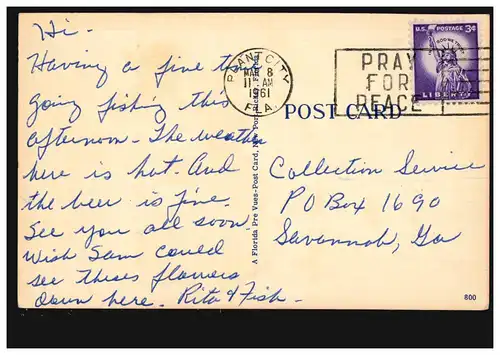 Hi -
Having a fine time
Going fishing this
afternoon. The weather
here is hot. And
the beer is fine.
See you all soon.
Wish Sam could
see theses flowers
down here. Rita & Fish.
A Florida Pre Vues-Post Card,
PLANT CITY
FLA.
MAR 8
11 AM
1961
PRAY
FOR
PEACE
U.S. POSTAGE 3¢
IN GOD WE TRUST
LIBERTY
POST CARD
Collection Service
PO Box 1690
Savannah, Ga
800